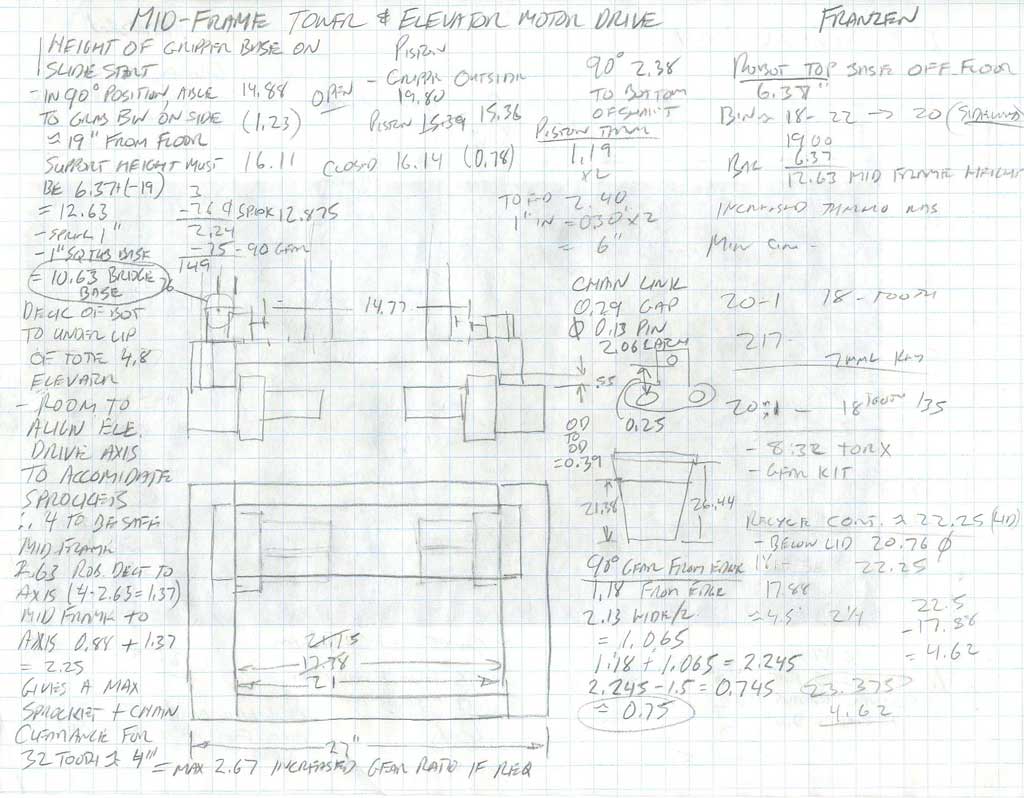 MID-FRAME TOWER & ELEVATOR MOTOR DRIVE
FRANZEN
HEIGHT OF GRIPPER BASE ON
SLIDE START
- IN 90° POSITION, ABLE 14.88
TO GRAB BIN ON SIDE (1.23)
≈ 19" FROM FLOOR
SUPPORT HEIGHT MUST 16.11
BE 6.37+(-19)
= 12.63
- 1" SQ TUB BASE
= 10.63 BRIDGE
BASE
3
2.24
149
PISTON
- GRIPPR OUTSIDE
OPEN 19.80
PISTON 15.39 15.36
CLOSED 16.14 (0.78)
90° 2.38
TO BOTTOM
OF SHAFT
1.19
x2
2.40
1" IN = 030' x 2
= 6"
ROBOT TOP BASE OFF FLOOR
6.37"
BIN ≈ 18 - 22 → 20
1900
6.37
12.63 MID FRAME HEIGHT
INCREASED
DECK OF BOT
TO UNDER LIP
OF TOTE 4.8
ELEVATR
- ROOM TO
ALIGN ELE.
DRIVE AXIS
TO ACCOMIDATE
SPROCKETS
∴ 4 TO BE SAFE
MID FRAME
2.63 ROB. DECT TO
AXIS (4-2.63=1.37)
MID FRAME TO
AXIS 0.88 + 1.37
= 2.25
GIVES A MAX
SPROCKET + CHAIN
CLEARANCE FOR
32 TOOTH ≈ 4"
= MAX 2.67 INCREASED GEAR RATIO IF REQ
14.77
21
27"
CHAIN LINK
0.29 GAP
φ 0.13 PIN
55
0.25
OD
TO
OD
=0.39
20-1 18-TOOTH
217
18 TOOTH /35
- 8:32 TORX
- GEAR KIT
21.38
26.44
RECYCE CONT. ≈ 22.25 (LID)
- BELOW LID 20.76 φ
22.25
90° GEAR FROM EDGE
1.18 FROM EDGE 17.88
2.13 WIDE/2
= 1.065
1.18 + 1.065 = 2.245
2.245 - 1.5 = 0.745
≈ 0.75
22.5
= 4.62
23.375
4.62